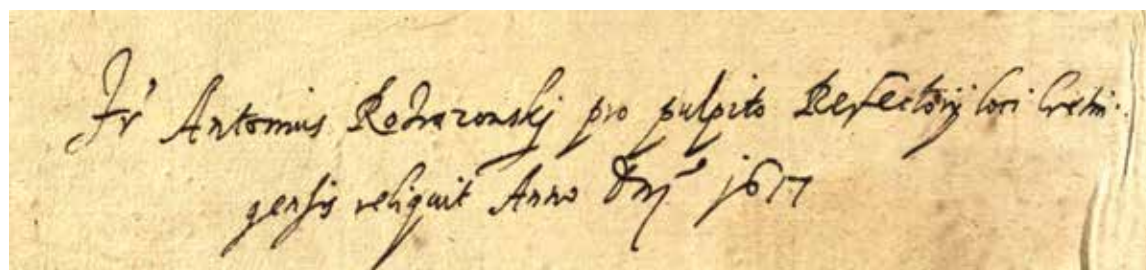 Fr Antonius Rozrazowskj pro pulpito Refectorij loci Cretin-
gensis reliquit Anno Dnj 1617